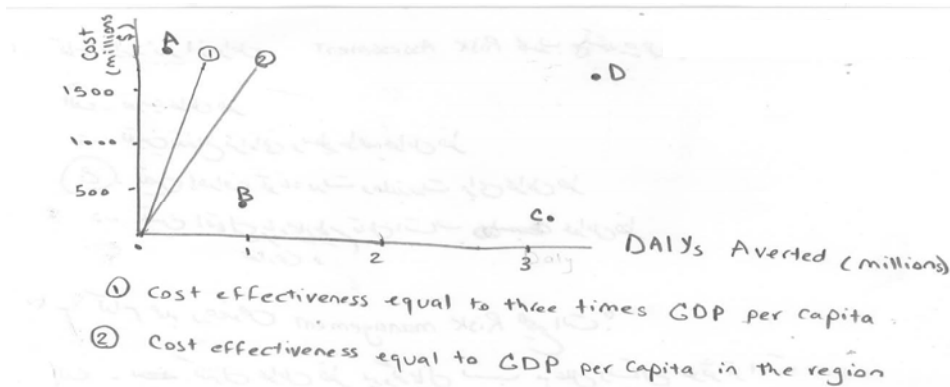 Cost
(millions
$)
A
①
②
.D
1500
1000
500
B
C.
1
2
3
DALYs Averted (millions)
① Cost effectiveness equal to three times GDP per capita
② Cost effectiveness equal to GDP per capita in the region